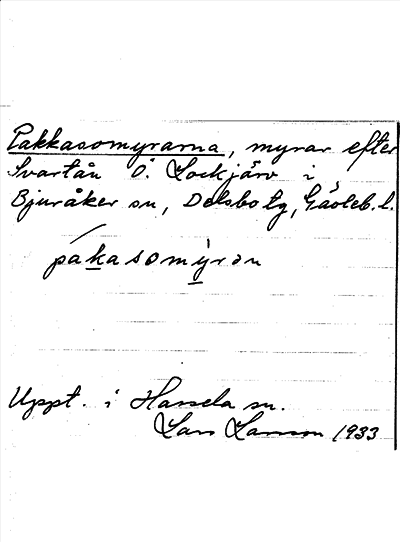 Pakkasomyrarna, myrar efter
Svartån Ö. Lockjärv i
Bjuråker sn, Delsbo tg, Gävleb. l.
pakasomýrən
Uppt. i Hassela sn.
Lars Larsson 1933